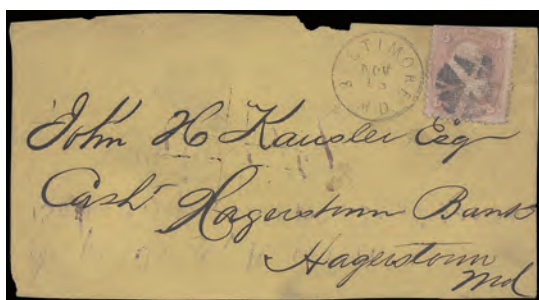 BALTIMORE
NOV
MD
John H Kausler Esq
Cash Hagerstown Bank
Hagerstown
Md